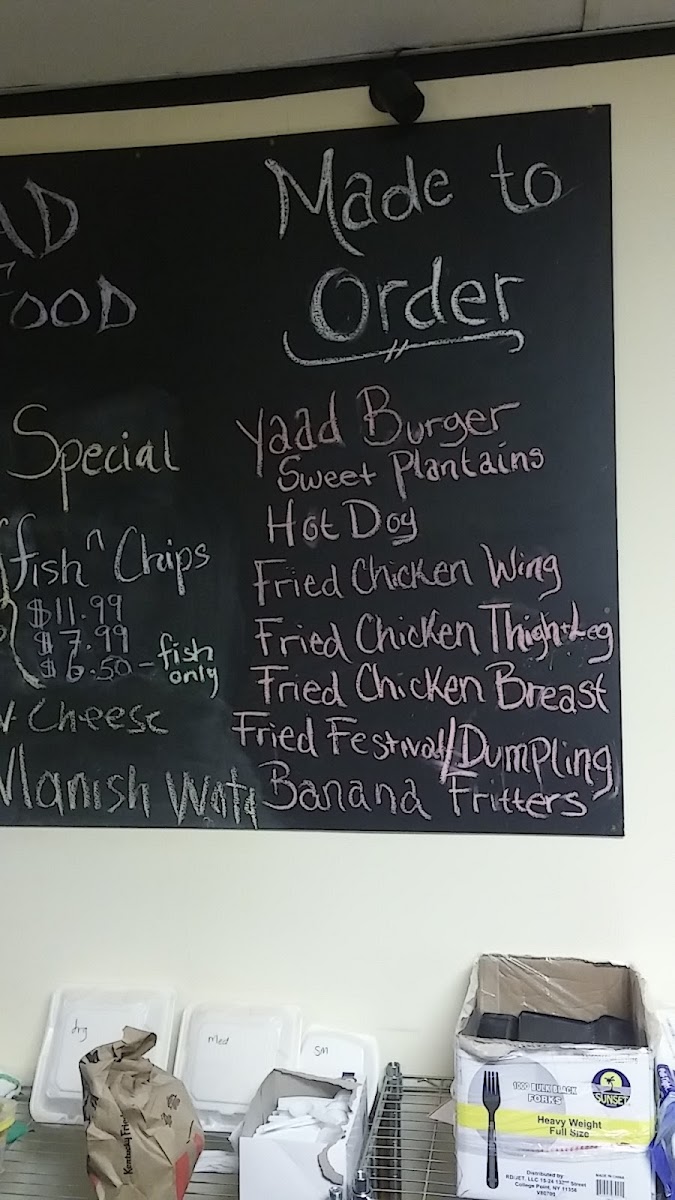 FOOD
Special
fish n Chips
$11.99
$7.99
$6.50 - fish
only
Cheese
Manish Wata
Made to
Order
Yaad Burger
Sweet Plantains
Hot Dog
Fried Chicken Wing
Fried Chicken Thigh+Leg
Fried Chicken Breast
Fried Festival/Dumpling
Banana Fritters
med
SM
1000 BULK BLACK
FORKS
SUNSET
Heavy Weight
Full Size
Distributed by
RDJET, LLC 15-24 132nd Street
College Point, NY 11356